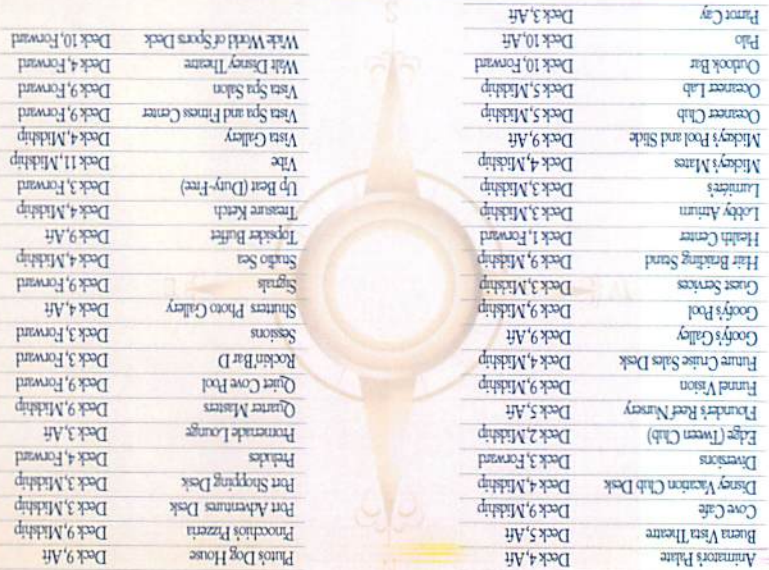 Animator's Palate Deck 4, Aft
Buena Vista Theatre Deck 5, Aft
Cove Cafe Deck 9, Midship
Disney Vacation Club Desk Deck 4, Midship
Diversions Deck 3, Forward
Edge (Tween Club) Deck 2, Midship
Flounder's Reef Nursery Deck 5, Aft
Funnel Vision Deck 9, Midship
Future Cruise Sales Desk Deck 4, Midship
Goofy's Galley Deck 9, Aft
Goofy's Pool Deck 9, Midship
Guest Services Deck 3, Midship
Hair Braiding Stand Deck 9, Midship
Health Center Deck 1, Forward
Lobby Atrium Deck 3, Midship
Lumière's Deck 3, Midship
Mickey's Mates Deck 4, Midship
Mickey's Pool and Slide Deck 9, Aft
Oceaneer Club Deck 5, Midship
Oceaneer Lab Deck 5, Midship
Outlook Bar Deck 10, Forward
Palo Deck 10, Aft
Parrot Cay Deck 3, Aft
Pluto's Dog House Deck 9, Aft
Pinocchio's Pizzeria Deck 9, Midship
Port Adventures Desk Deck 3, Midship
Port Shopping Desk Deck 3, Midship
Preludes Deck 4, Forward
Promenade Lounge Deck 3, Aft
Quarter Masters Deck 9, Midship
Quiet Cove Pool Deck 9, Forward
Rockin Bar D Deck 3, Forward
Sessions Deck 3, Forward
Shutters Photo Gallery Deck 4, Aft
Signals Deck 9, Forward
Studio Sea Deck 4, Midship
Topsider Buffet Deck 9, Aft
Treasure Ketch Deck 4, Midship
Up Beat (Duty-Free) Deck 3, Forward
Vibe Deck 11, Midship
Vista Gallery Deck 4, Midship
Vista Spa and Fitness Center Deck 9, Forward
Vista Spa Salon Deck 9, Forward
Walt Disney Theatre Deck 4, Forward
Wide World of Sports Deck Deck 10, Forward